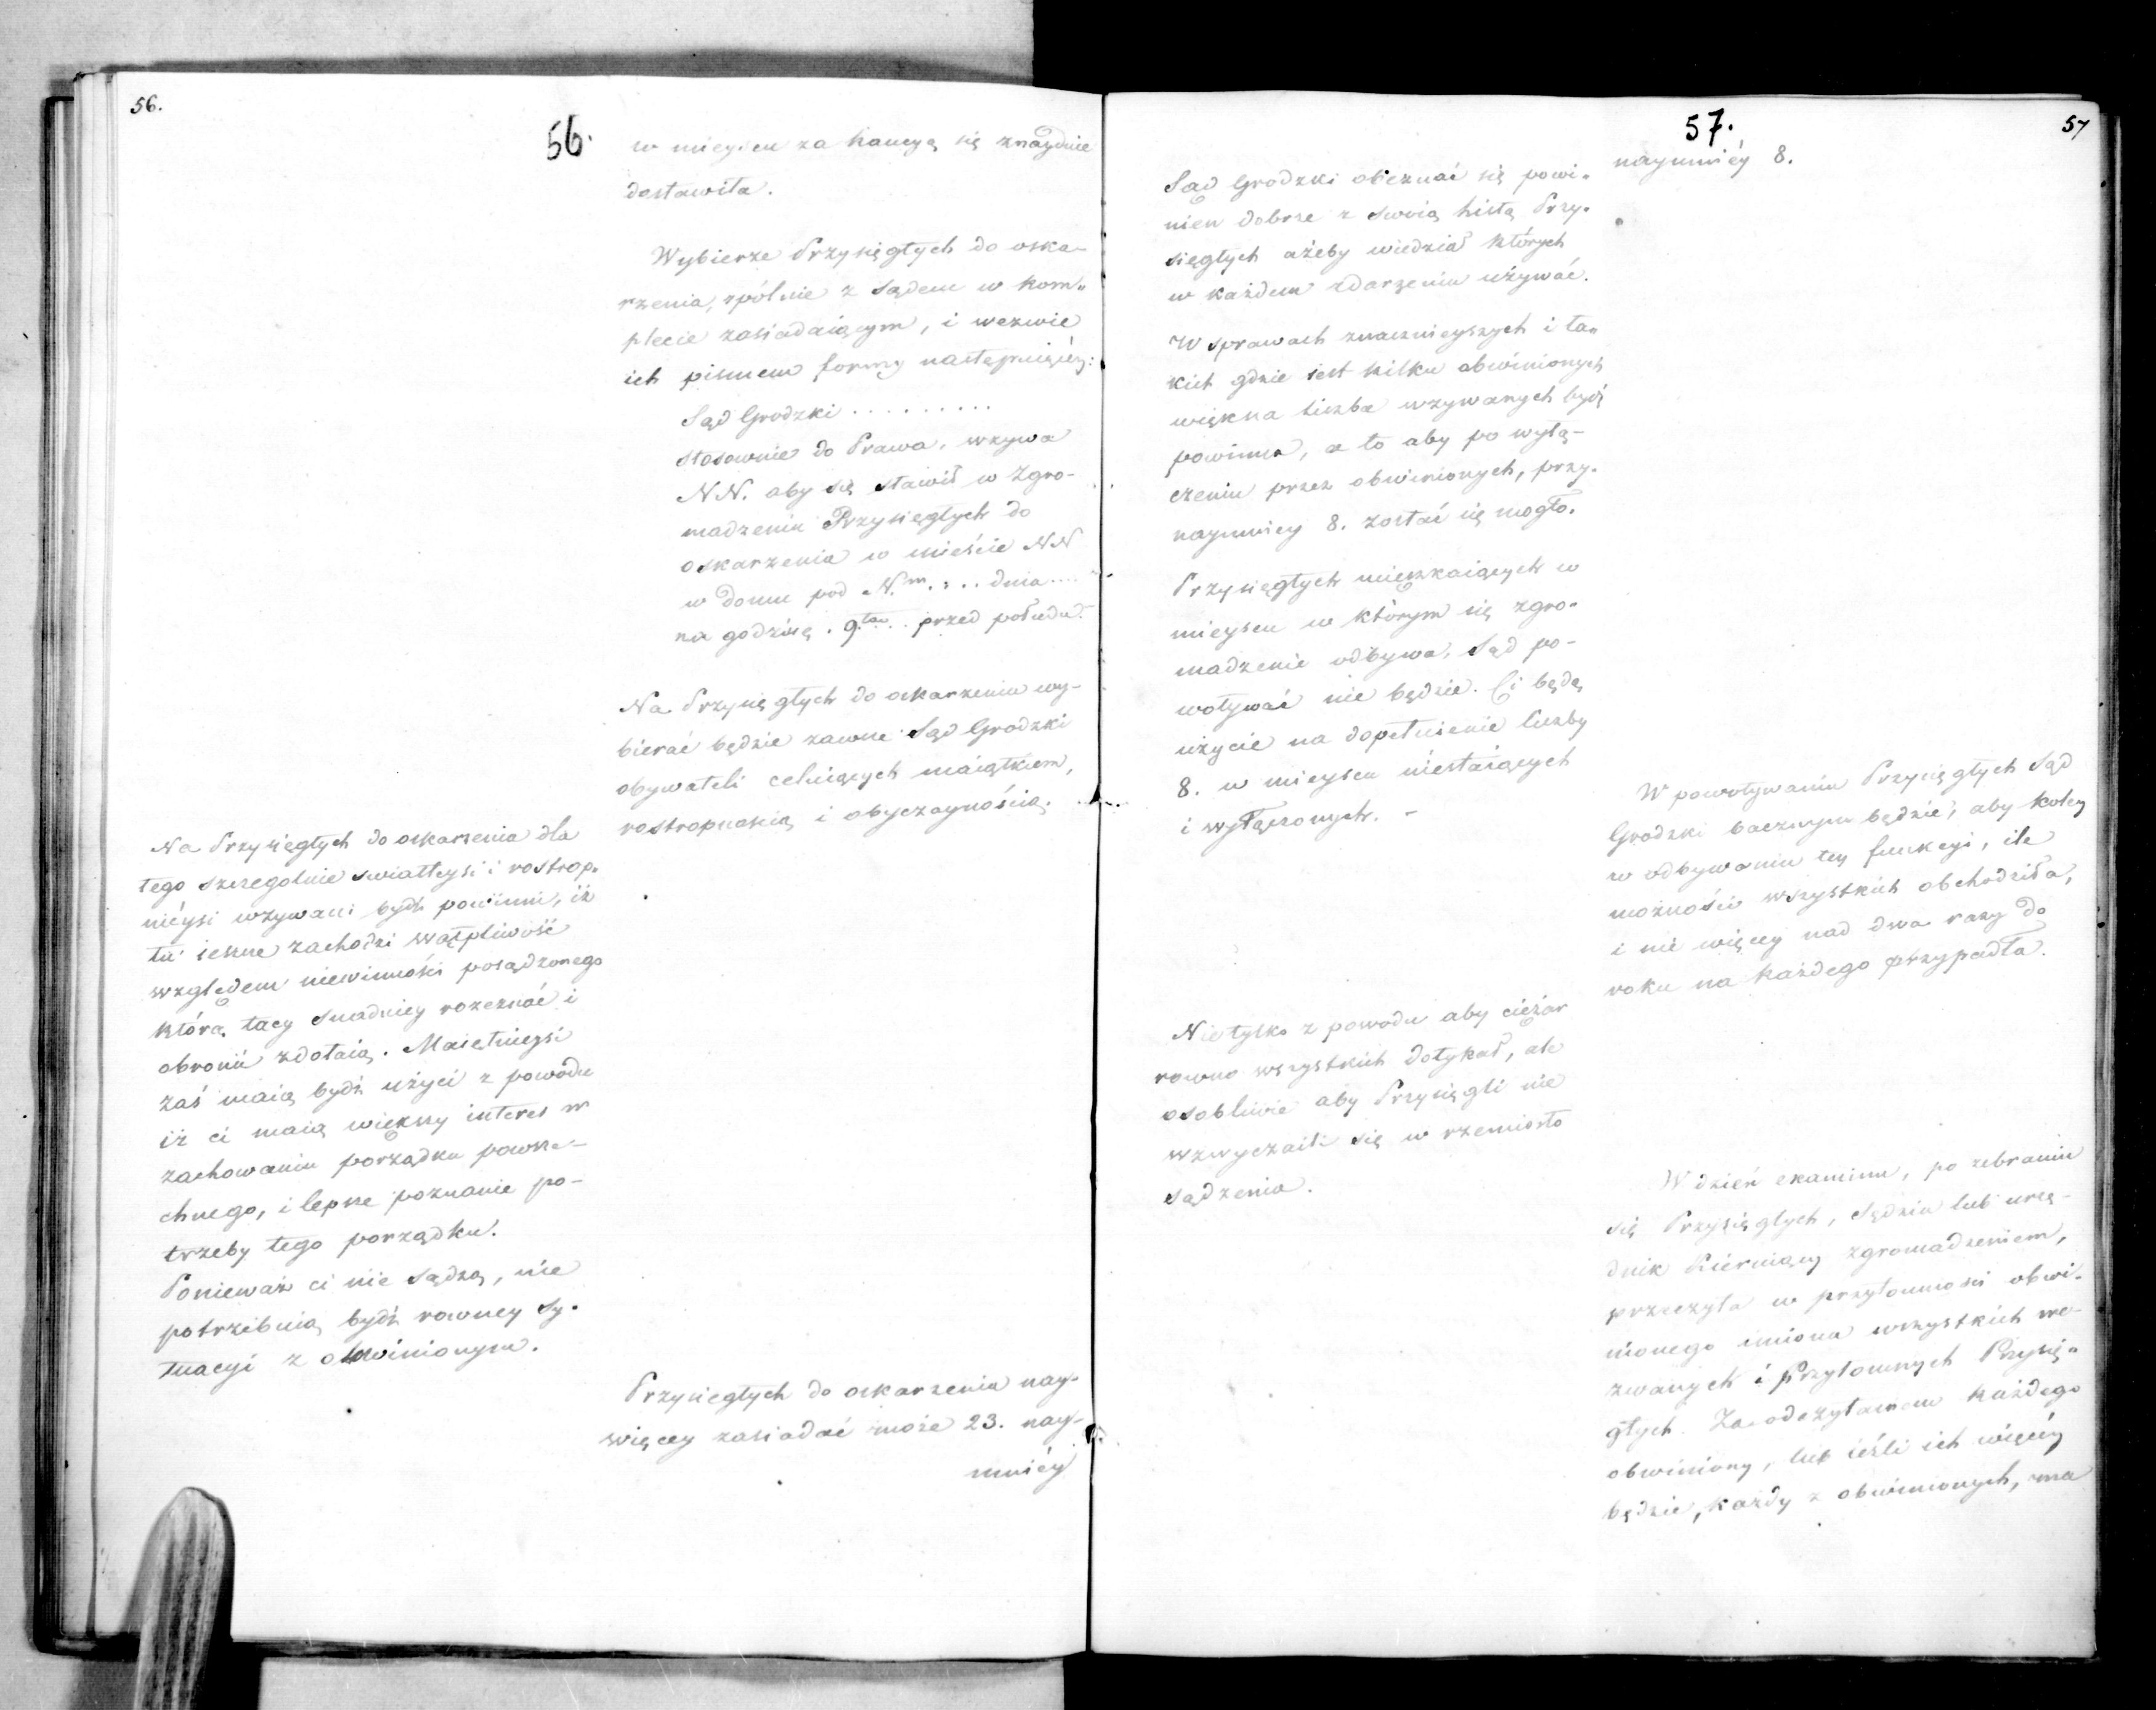 56.
56.
w mieyscu za kaucyą się znayduie
dostawiła.
Wybierze Przysięgłych do oska-
rzenia, spólnie z Sądem w kom-
plecie zasiadaiącym, i wezwie
ich pismem formy następuiącéy:
Sąd Grodzki . . . . . . . . .
stosownie do Prawa, wzywa
NN. aby się stawił w Zgro-
madzeniu Przysięgłych do
oskarzenia w mieście NN
w domu pod N.m . . . dnia . . . .
na godzinę . 9.tą . . przed połudn.
Na Przysięgłych do oskarzenia wy-
bierać będzie zawsze Sąd Grodzki
obywateli celuiących maiątkiem,
rostropnością i obyczaynością.
Na Przysięgłych do oskarzenia dla
tego szczegolnie swiatleysi i rostrop-
niéysi wzywani bydź powinni, iż
tu ieszcze zachodzi wątpliwość
względem niewinności posądzonego
którą tacy snadniey rozeznać i
obronić zdołaią. Maiętnieysi
zaś maią bydź użyci z powodu
iż ci maią większy interes w
zachowaniu porządku powsze-
chnego, i lepsze poznanie po-
trzeby tego porządku.
Ponieważ ci nie sądzą, nie
potrzebuią bydź rowney sy-
tuacyi z obwinionym.
Przysięgłych do oskarzenia nay-
więcey zasiadać może 23. nay-
mniéy
57.
57
naymniéy 8.
Sąd Grodzki obeznać się powi-
nien dobrze z swoią listą Przy-
sięgłych ażeby wiedział których
w każdem zdarzeniu używać.
W sprawach znacznieyszych i ta-
kich gdzie iest kilku obwinionych
większa liczba wzywanych bydź
powinna, a to aby po wyłą-
czeniu przez obwinionych, przy-
naymniey 8. zostać się mogło.
Przysięgłych mieszkaiących w
mieyscu w którym się zgro-
madzenie odbywa, Sąd po-
woływać nie będzie. Ci będą
użycie na dopełnienie liczby
8. w mieyscu niestaiących
i wyłączonych. -
W powoływaniu Przysięgłych Sąd
Grodzki bacznym będzie, aby koley
w odbywaniu tey funkcyi, ile
możności wszystkich obchodziła,
i nie więcey nad dwa razy do
roku na każdego przypadła.
Nietylko z powodu aby ciężar
rowno wszystkich dotykał, ale
osobliwie aby Przysięgli nie
wzwyczaili się w rzemiosło
sądzenia.
W dzień examinu, po zebraniu
się Przysięgłych, Sędzia lub urzę-
dnik kieruiący zgromadzeniem,
przeczyta w przytomności obwi-
nionego imiona wszystkich we-
zwanych i przytomnych Przysię-
głych. Za odczytaniem każdego
obwiniony, lub ieśli ich więcéy
będzie, każdy z obwinionych, ma